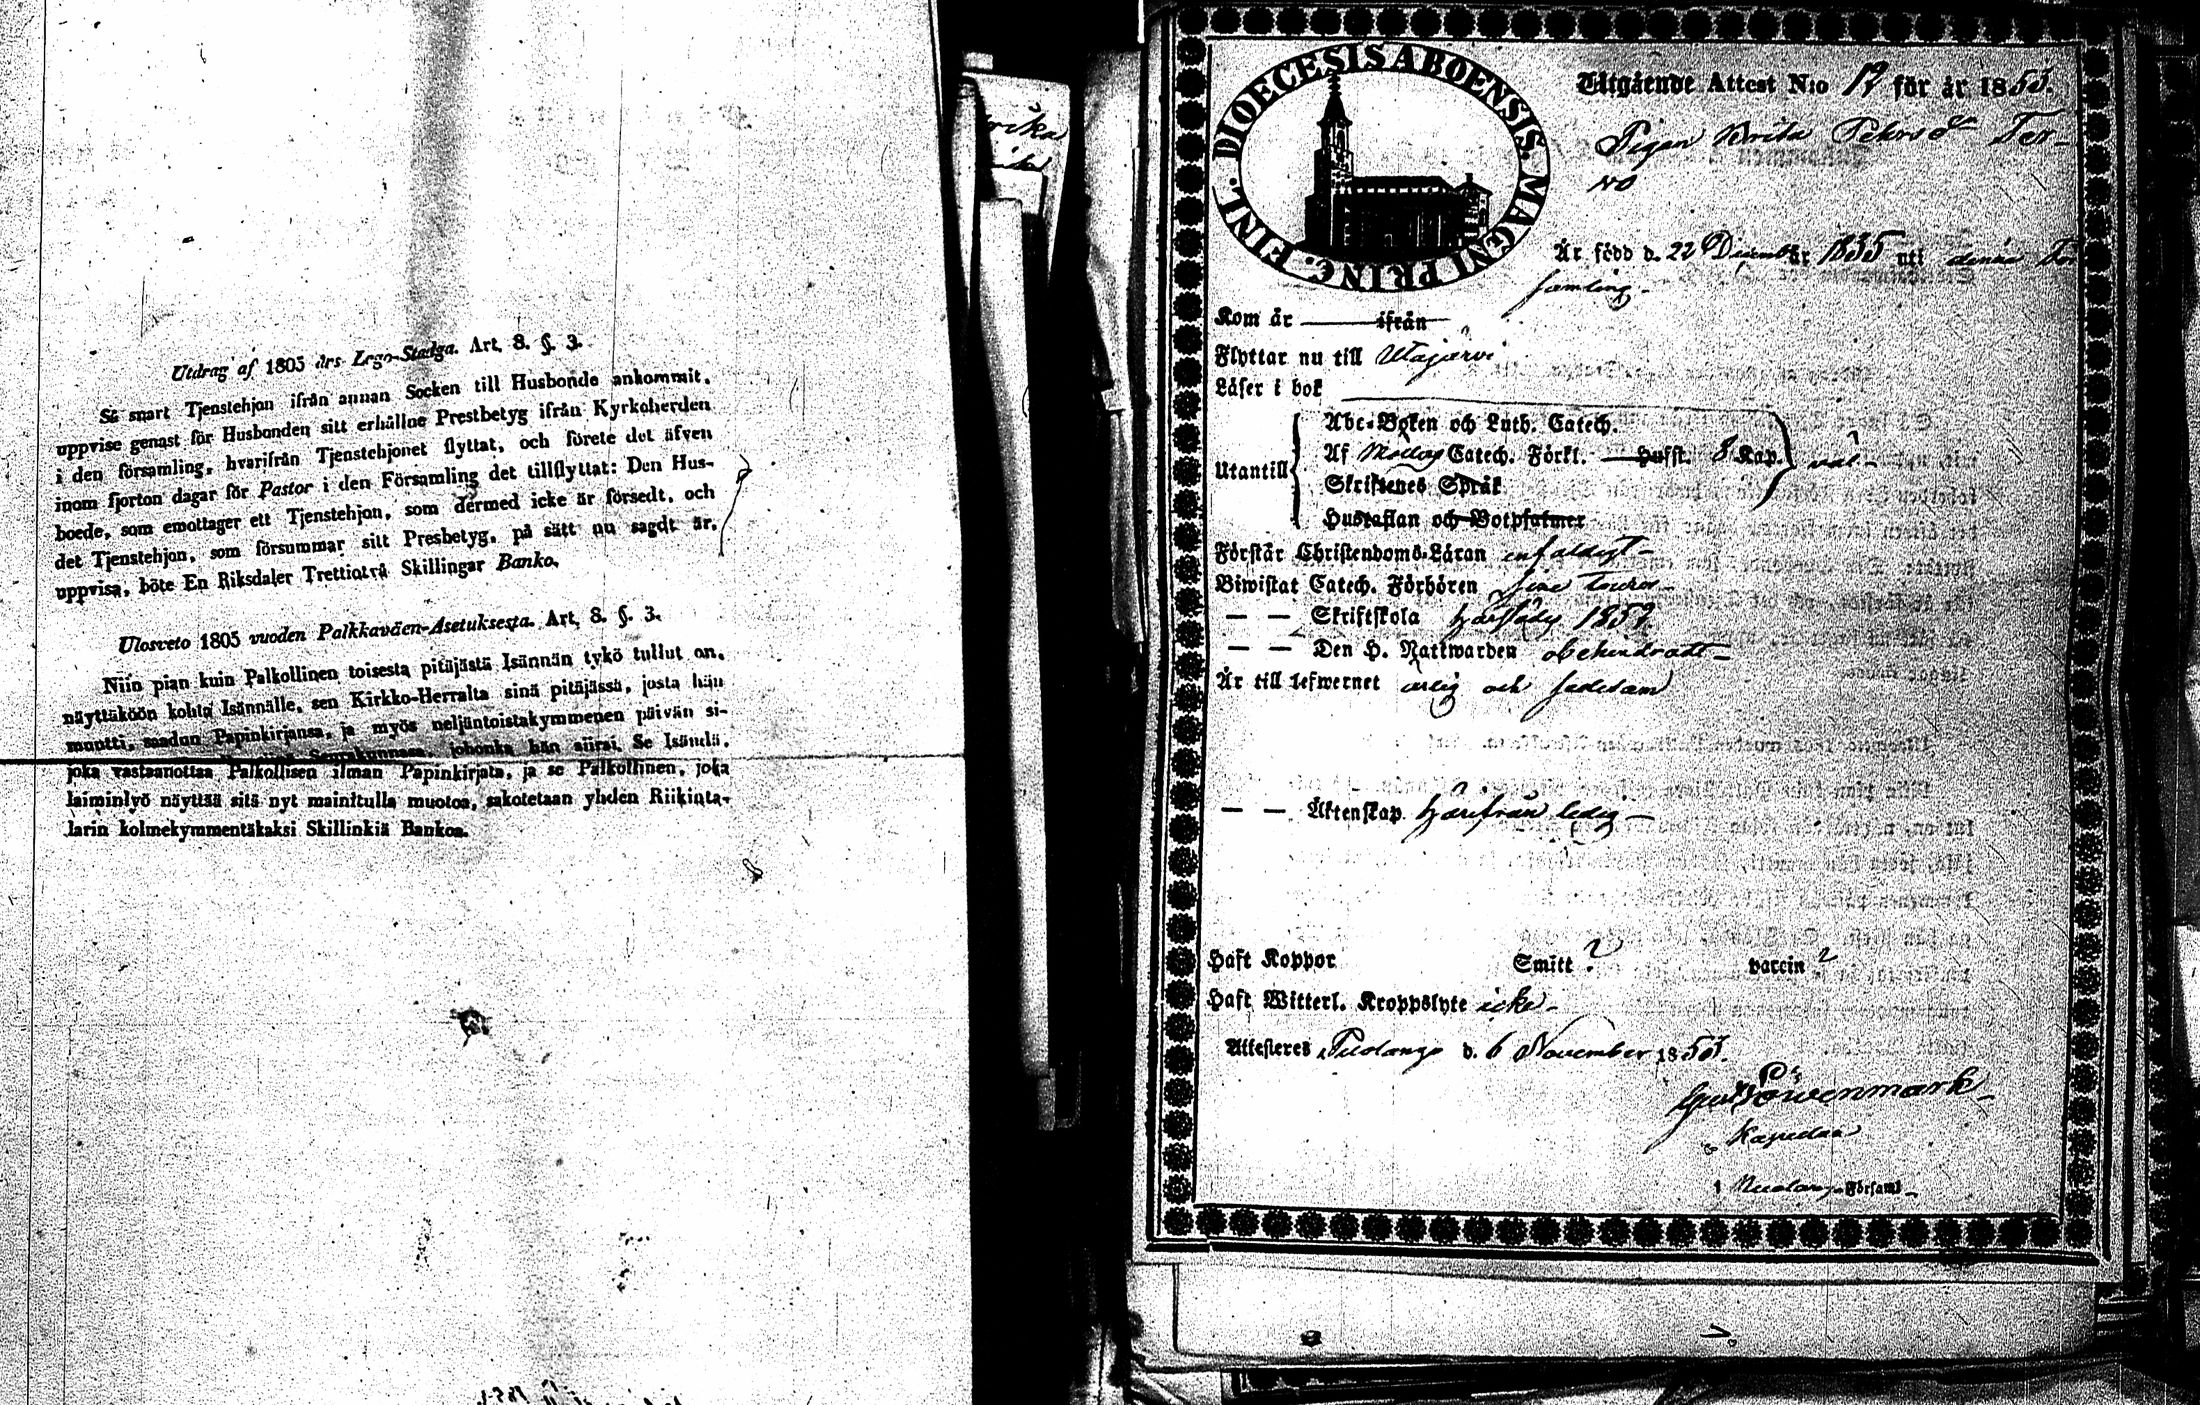 Utdrag af 1805 års Lego-Stadga. Art. 8. §. 3.
Så snart Tjenstehjon ifrån annan Socken till Husbonde ankommit,
uppvise genast för Husbonden sitt erhållne Prestbetyg ifrån Kyrkoherden
i den församling, hvarifrån Tjenstehjonet flyttat, och förete det äfven
inom fjorton dagar för Pastor i den Församling det tillflyttat: Den Hus-
boede, som emottager ett Tjenstehjon, som dermed icke är försedt, och
det Tjenstehjon, som försummar sitt Presbetyg, på sätt nu sagdt är,
uppvisa, böte En Riksdaler Trettiotvå Skillingar Banko.
Ulosveto 1805 vuoden Palkkaväen-Asetuksesta. Art. 8. §. 3.
Niin pian kuin Palkollinen toisesta pitäjästä Isännän tykö tullut on,
näyttäköön kohta Isännälle, sen Kirkko-Herralta sinä pitäjässä, josta hän
muutti, saadun Papinkirjansa, ja myös neljäntoistakymmenen päivän si-
Seurakunnassa, johonka hän siirsi. Se Isäntä,
joka vastaanottaa Palkollisen ilman Papinkirjata, ja se Palkollinen, joka
laiminlyö näyttää sitä nyt mainitulla muotoa, sakotetaan yhden Riikinta-
larin kolmekymmentäkaksi Skillinkiä Bankoa.
DIOECESIS ABOENSIS. MAGNI PRINC. FINL.
Utgående Attest N:o 17 för år 1853.
Pigan Brita Pehrsd Ter-
vo
Är född d. 22 Decemb år 1835 uti denna För
samling.
Kom år ifrån
Flyttar nu till Utajärvi
Läser i bok
Utantill
Abc-Boken och Luth. Catech.
Af Catech. Förkl. Hufst. 8 Kap. väl
Skriftenes Språk
Hustaflan och Botpsalmer
Förstår Christendoms-Läran enfaldigt
Biwistat Catech. Förhören sine
— — Skriftskola härstädes 1852
— — Den H. Nattwarden obehindradt
Är till lefwernet ärlig och sedesam
— — Äktenskap härifrån ledig
Haft Koppor Smitt ? vaccin ?
Haft Witterl. Kroppslyte icke
Attesteres Puolango d. 6 November 1853.
Gust Löwenmark
Kapellan
i Puolango Församl